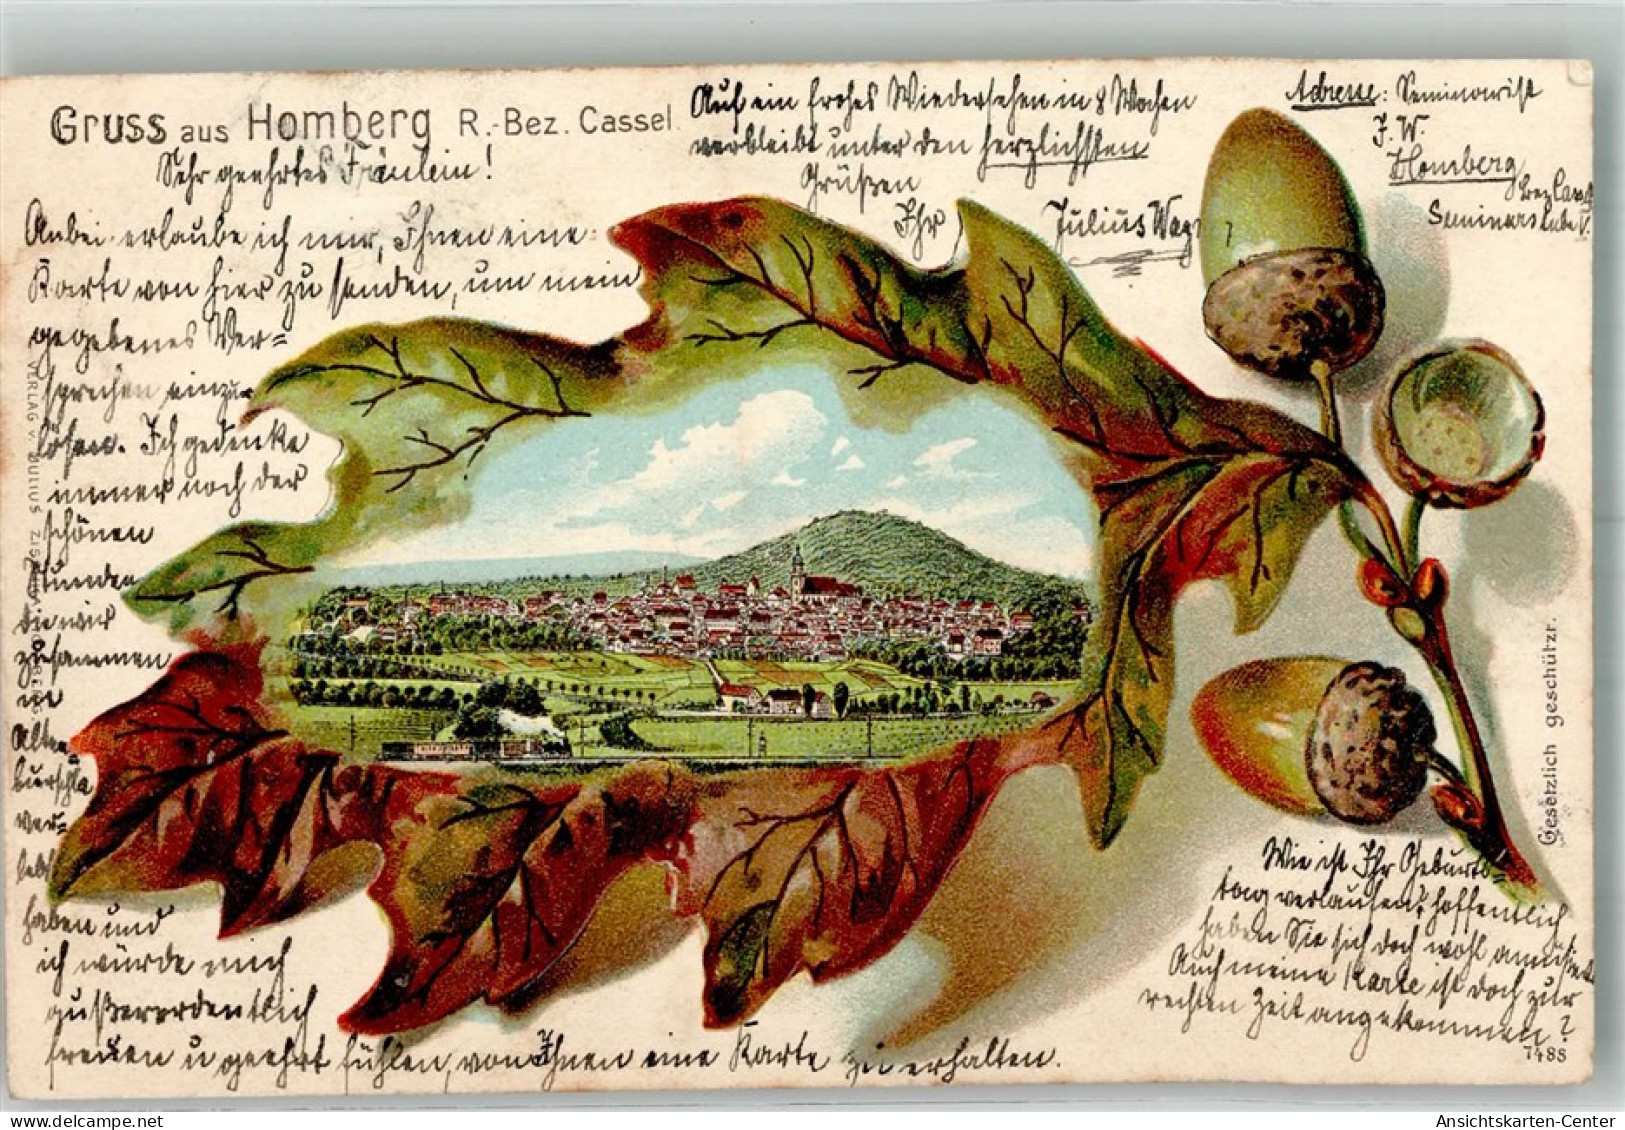 Gruss aus Homberg R.-Bez. Cassel.
Sehr geehrtes Fräulein!
Anbei erlaube ich mir, Ihnen eine
Karte von hier zu senden, um mein
gegebenes Ver=
sprechen einzu=
lösen. Ich gedenke
immer noch der
schönen
Stunden
die wir
zusammen
in
Alten
burschla
ver=
lebt
haben und
ich würde mich
außerordentlich
freuen u geehrt fühlen, von Ihnen eine Karte zu erhalten.
Auf ein frohes Wiedersehen in 8 Wochen
verbleibt unter den herzlichsten
Grüßen
Ihr Julius
Adresse: Seminarist
J. W.
Homberg
Bez Cassel
Seminarstube V.
Wie ist Ihr Geburts=
tag verlaufen? hoffentlich
haben Sie sich doch wohl amüsiert
Auch meine Karte ist doch zur
rechten Zeit angekommen?
VERLAG v. JULIUS
Gesetzlich geschützt.
7488
Ansichtskarten-Center